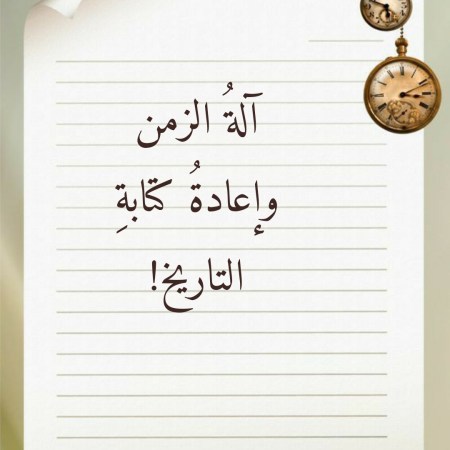 آلةُ الزمن
وإعادةُ كتابةِ
التاريخ!